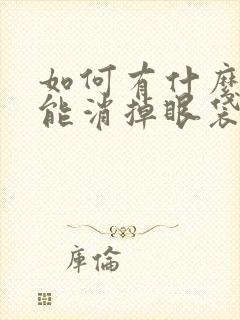 如何有什麼
能消掉眼袋
庫倫